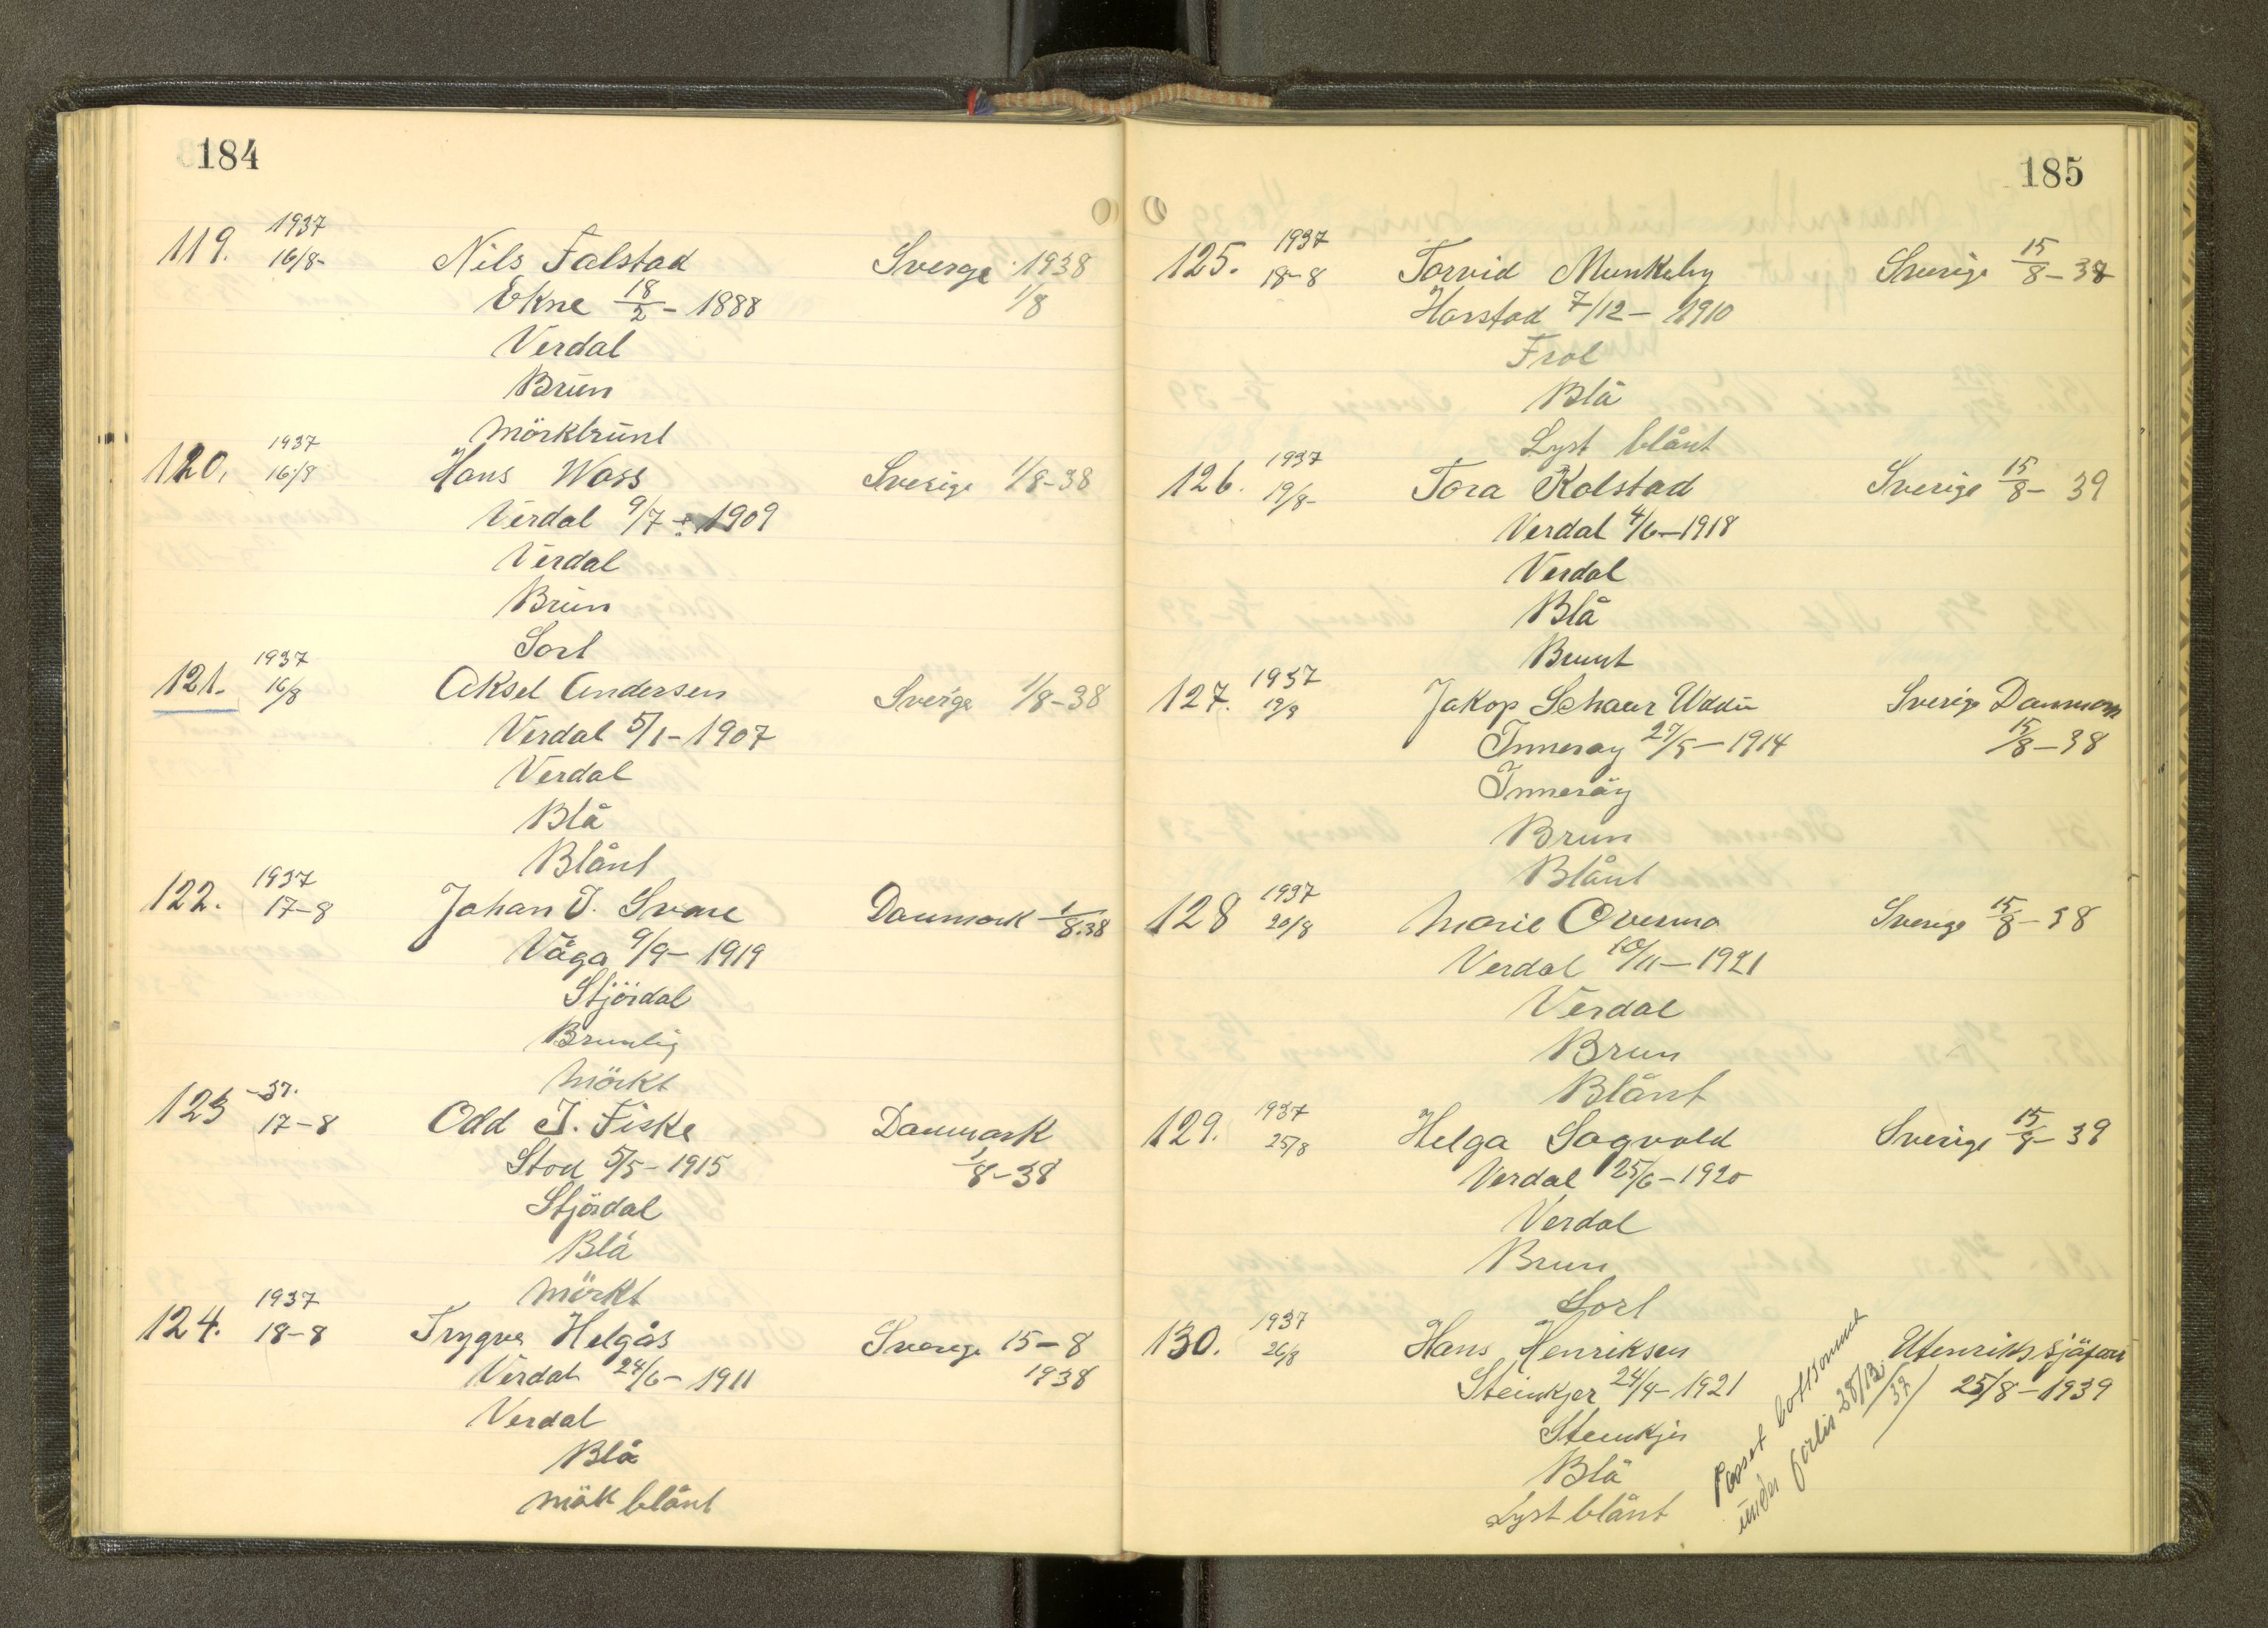 184
1937
119. 16/8- Nils Falstad Sverge 1938
Ekne 18/2 - 1888 1/8
Verdal
Brun
mörkbrunt
1937
120. 16/8 Hans Woss Sverige 1/8-38
Verdal 9/7 - 1909
Verdal
Brun
Sort
1937
121. 16/8 Aksel Andersen Sverge 1/8-38
Verdal 5/1-1907
Verdal
Blå
Blånt
1937
122. 17-8 Johan T. Svare Danmark 1/8.38
Våga 9/9-1919
Stjördal
Brunlig
Mörkt
-37.
123 17-8 Odd J. Fiske Danmark
Stod 5/5-1915 1/8-38
Stjördal
Blå
Mörkt
1937
124. 18-8 Trygve Helgås Sverge 15-8
Verdal 24/6-1911 1938
Verdal
Blå
mök blånt
185
1937
125. 18-8 Torvid Munkeby Sverige 15/8-38
Harstad 7/12-1910
Frol
Blå
Lyst blånt
1937
126. 19/8- Tora Kolstad Sverige 15/8-39
Verdal 4/6-1918
Verdal
Blå
Brunt
1937
127. 19/8 Jakop Schaar Uddu Sverige Danmark
Inneröy 27/5-1914 15/8-38
Inneröy
Brun
Blånt
1937
128 20/8 Marie Overmo Sverige 15/8-38
Verdal 10/11-1921
Verdal
Brun
Blånt
1937
129. 25/8 Helga Sagvold Sverige 15/8-39
Verdal 25/6-1920
Verdal
Brun
Sort
1937
130. 26/8 Hans Henriksen Utenriks sjöfart
Steinkjer 24/4-1921 25/8-1939
Steinkjer
Blå
Lyst blånt
Passet bortkommet
under forlis 28/12/37